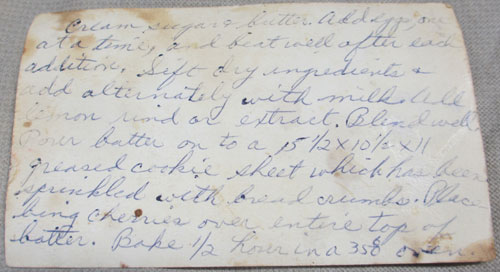 Cream sugar & butter. Add egg one
at a time, and beat well after each
addition. Sift dry ingredients &
add alternately with milk. Add
lemon rind or extract. Blend well
Pour batter on to a 15 1/2 x 10 1/2 x 11
greased cookie sheet which has been
sprinkled with bread crumbs. Place
bing cherries over entire top of
batter. Bake 1/2 hour in a 350 oven.